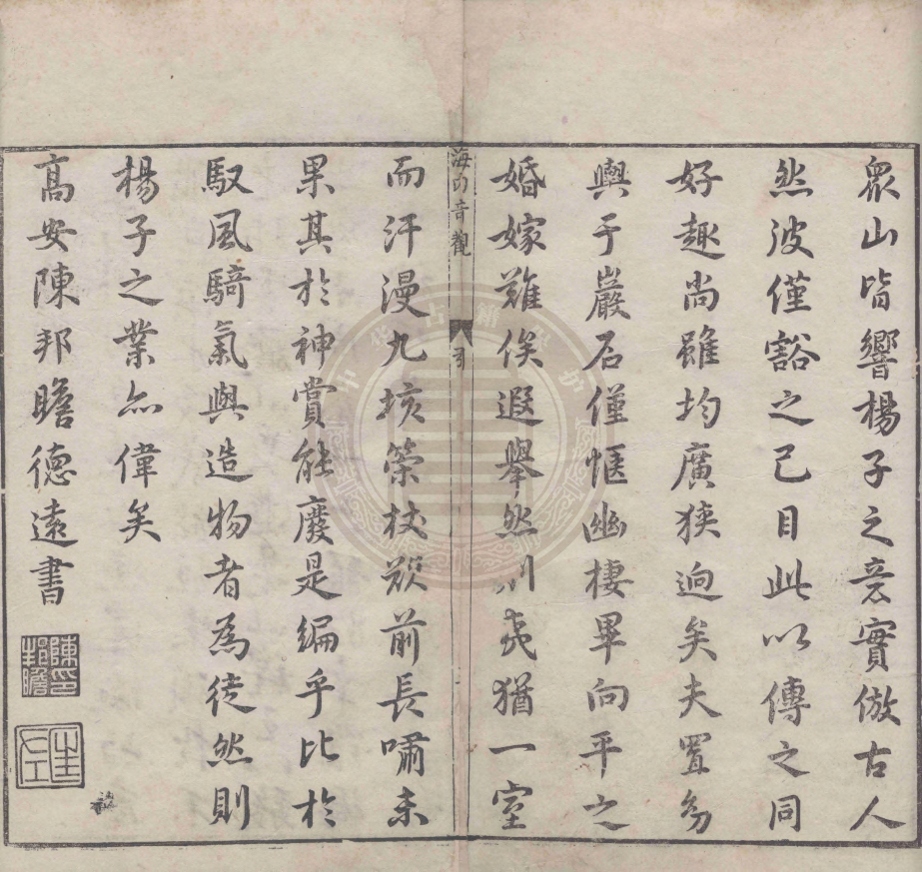 衆山皆響楊子之意實倣古人
然彼僅豁之己目此以傳之同
好趣尚雖均廣狹迥矣夫置身
輿于巖石僅愜幽棲畢向平之
婚嫁難俟遐舉然則我猶一室
海內奇觀
而汗漫九垓策杖欲前長嘯未
果其於神賞能廢是編乎比於
馭風騎氣與造物者為徒然則
楊子之業亦偉矣
高安陳邦瞻德遠書
陳邦瞻印